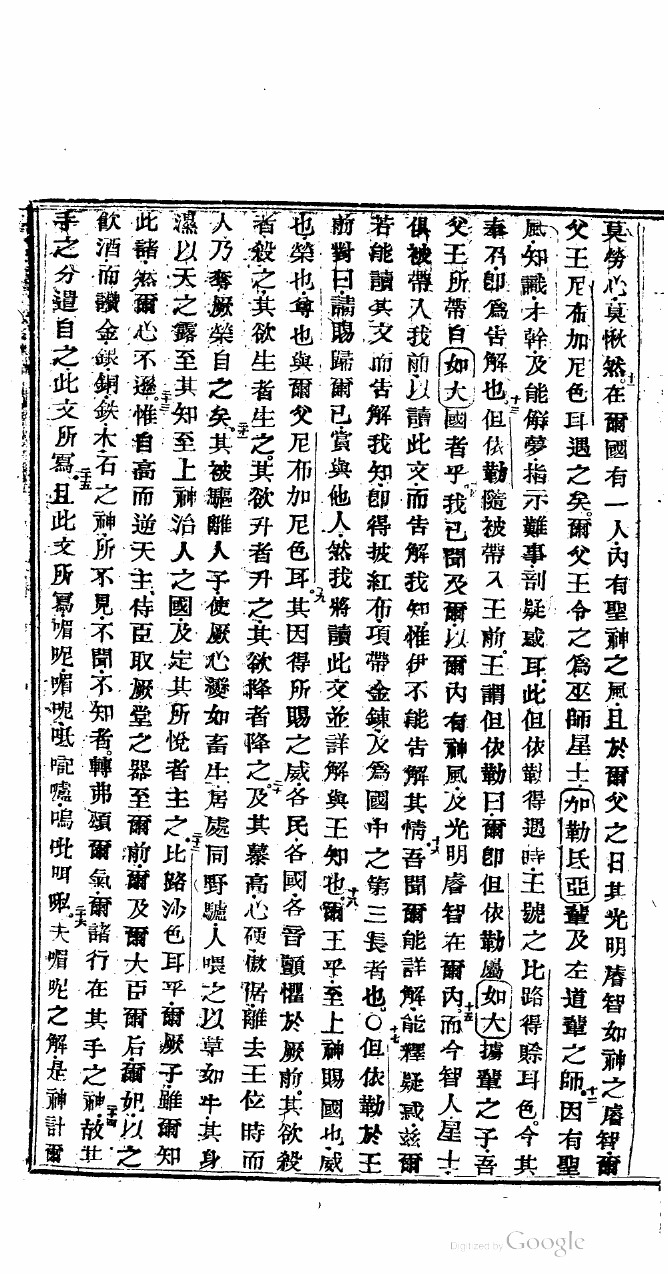 莫勞心莫愀然在爾國有一人內有聖神之風且於爾父之日其光明睿智如神之睿智爾
十一
父王尼布加尼色耳遇之矣爾父王令之為巫師星士加勒氐亞輩及左道輩之師因有聖
十二
風知識才幹及能解夢指示難事剖疑惑耳此但依勒得遇時王號之比路得賒耳色今其
奉召即為告解也但依勒隨被帶入王前王謂但依勒曰爾即但依勒屬如大擄輩之子吾
十三
父王所帶自如大國者乎我已聞及爾以爾內有神風及光明睿智在爾內而今智人星士
十五
俱被帶入我前以讀此文而告解我知惟伊不能告解其情吾聞爾能詳解能釋疑惑茲爾
十六
若能讀其文而告解我知即得披紅布項帶金鍊及為國中之第三長者也〇但依勒於王
十七
前對曰請賜歸爾已賞與他人然我將讀此文並詳解與王知也爾王乎至上神賜國也威
十八
也榮也尊也與爾父尼布加尼色耳其因得所賜之威各民各國各音顫懼於厥前其欲殺
十九
者殺之其欲生者生之其欲升者升之其欲降者降之及其慕高心硬傲倨離去王位時而
二十
人乃奪厥榮自之矣其被驅離人子使厥心變如畜生居處同野驢人喂之以草如牛其身
二十一
濕以天之露至其知至上神治人之國及定其所悅者主之比路沙色耳乎爾厥子雖爾知
二十二
此諸然爾心不遜惟自高而逆天主待臣取厥堂之器至爾前爾及爾大臣爾后爾妃以之
二十三
飲酒而讚金銀銅鉄木石之神所不見不聞不知者轉弗頌爾氣爾諸行在其手之神故其
二十四
手之分遣自之此文所寫且此文所寫嵋呢嵋呢
二十五
夫嵋呢之解是神計爾
二十六
Digitized by Google